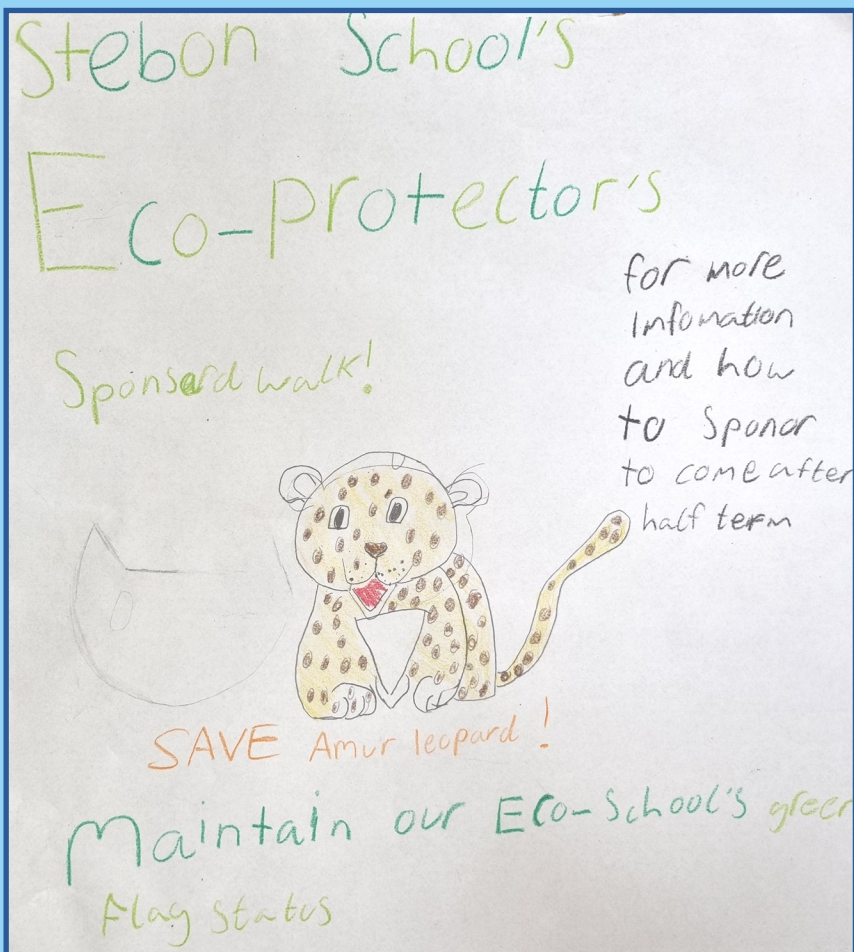 Stebon School's
Eco-protector's
for more
Infomation
and how
to Sponor
to come after
half term
Sponserd walk!
SAVE Amur leopard!
Maintain our Eco-School's green
Flag status